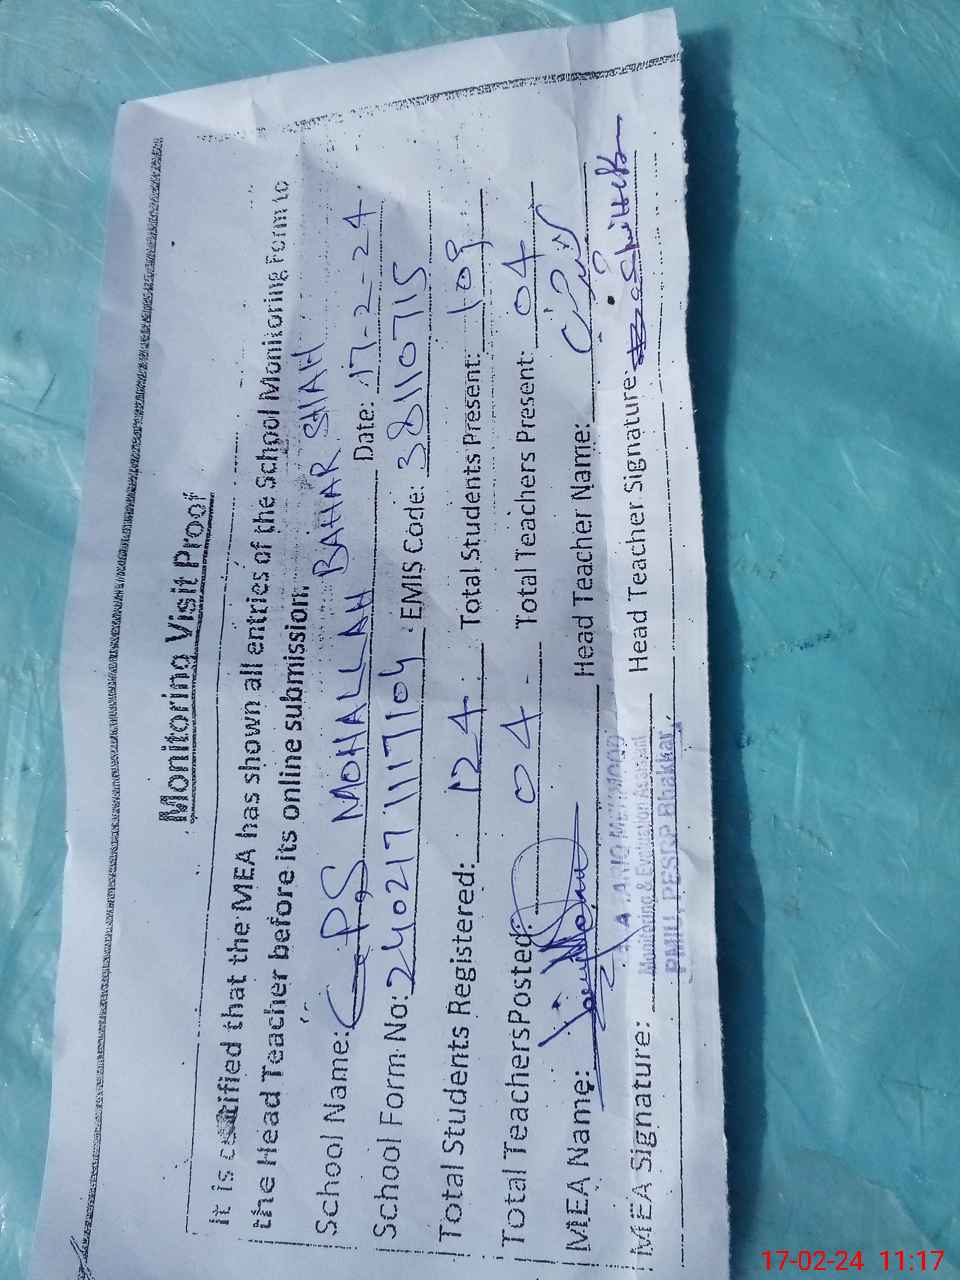 Monitoring Visit Proof
It is certified that the MEA has shown all entries of the School Monitoring Form to
the Head Teacher before its online submission.
School Name: GPS MOHALLAH BAHAR SHAH Date: 17-2-24
School Form No: 2402171117104 EMIS Code: 38110715
Total Students Registered: 124 Total Students Present: 109
Total Teachers Posted: 04 - Total Teachers Present: 04
MEA Name: Head Teacher Name:
MEA Signature: Head Teacher Signature:
TARIQ MEHMOOD
Monitoring & Evaluation Assistant
PMIU, PESRP Bhakkar
17-02-24 11:17